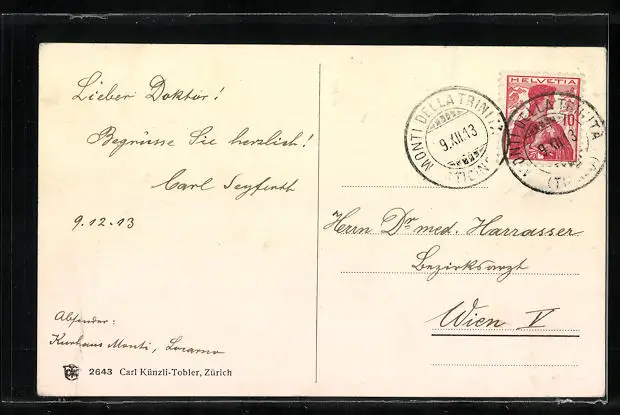 Lieber Doktor!
Begrüsse Sie herzlich!
Carl Seyferth
9.12.13
Absender:
Kurhaus Monti, Locarno
2643 Carl Künzli-Tobler, Zürich
MONTI DELLA TRINITA
9.XII.13
(TICINO)
HELVETIA
10
MONTI DELLA TRINITA
9.XII.13
(TICINO)
Herrn Dr med. Harrasser
Bezirksarzt
Wien V